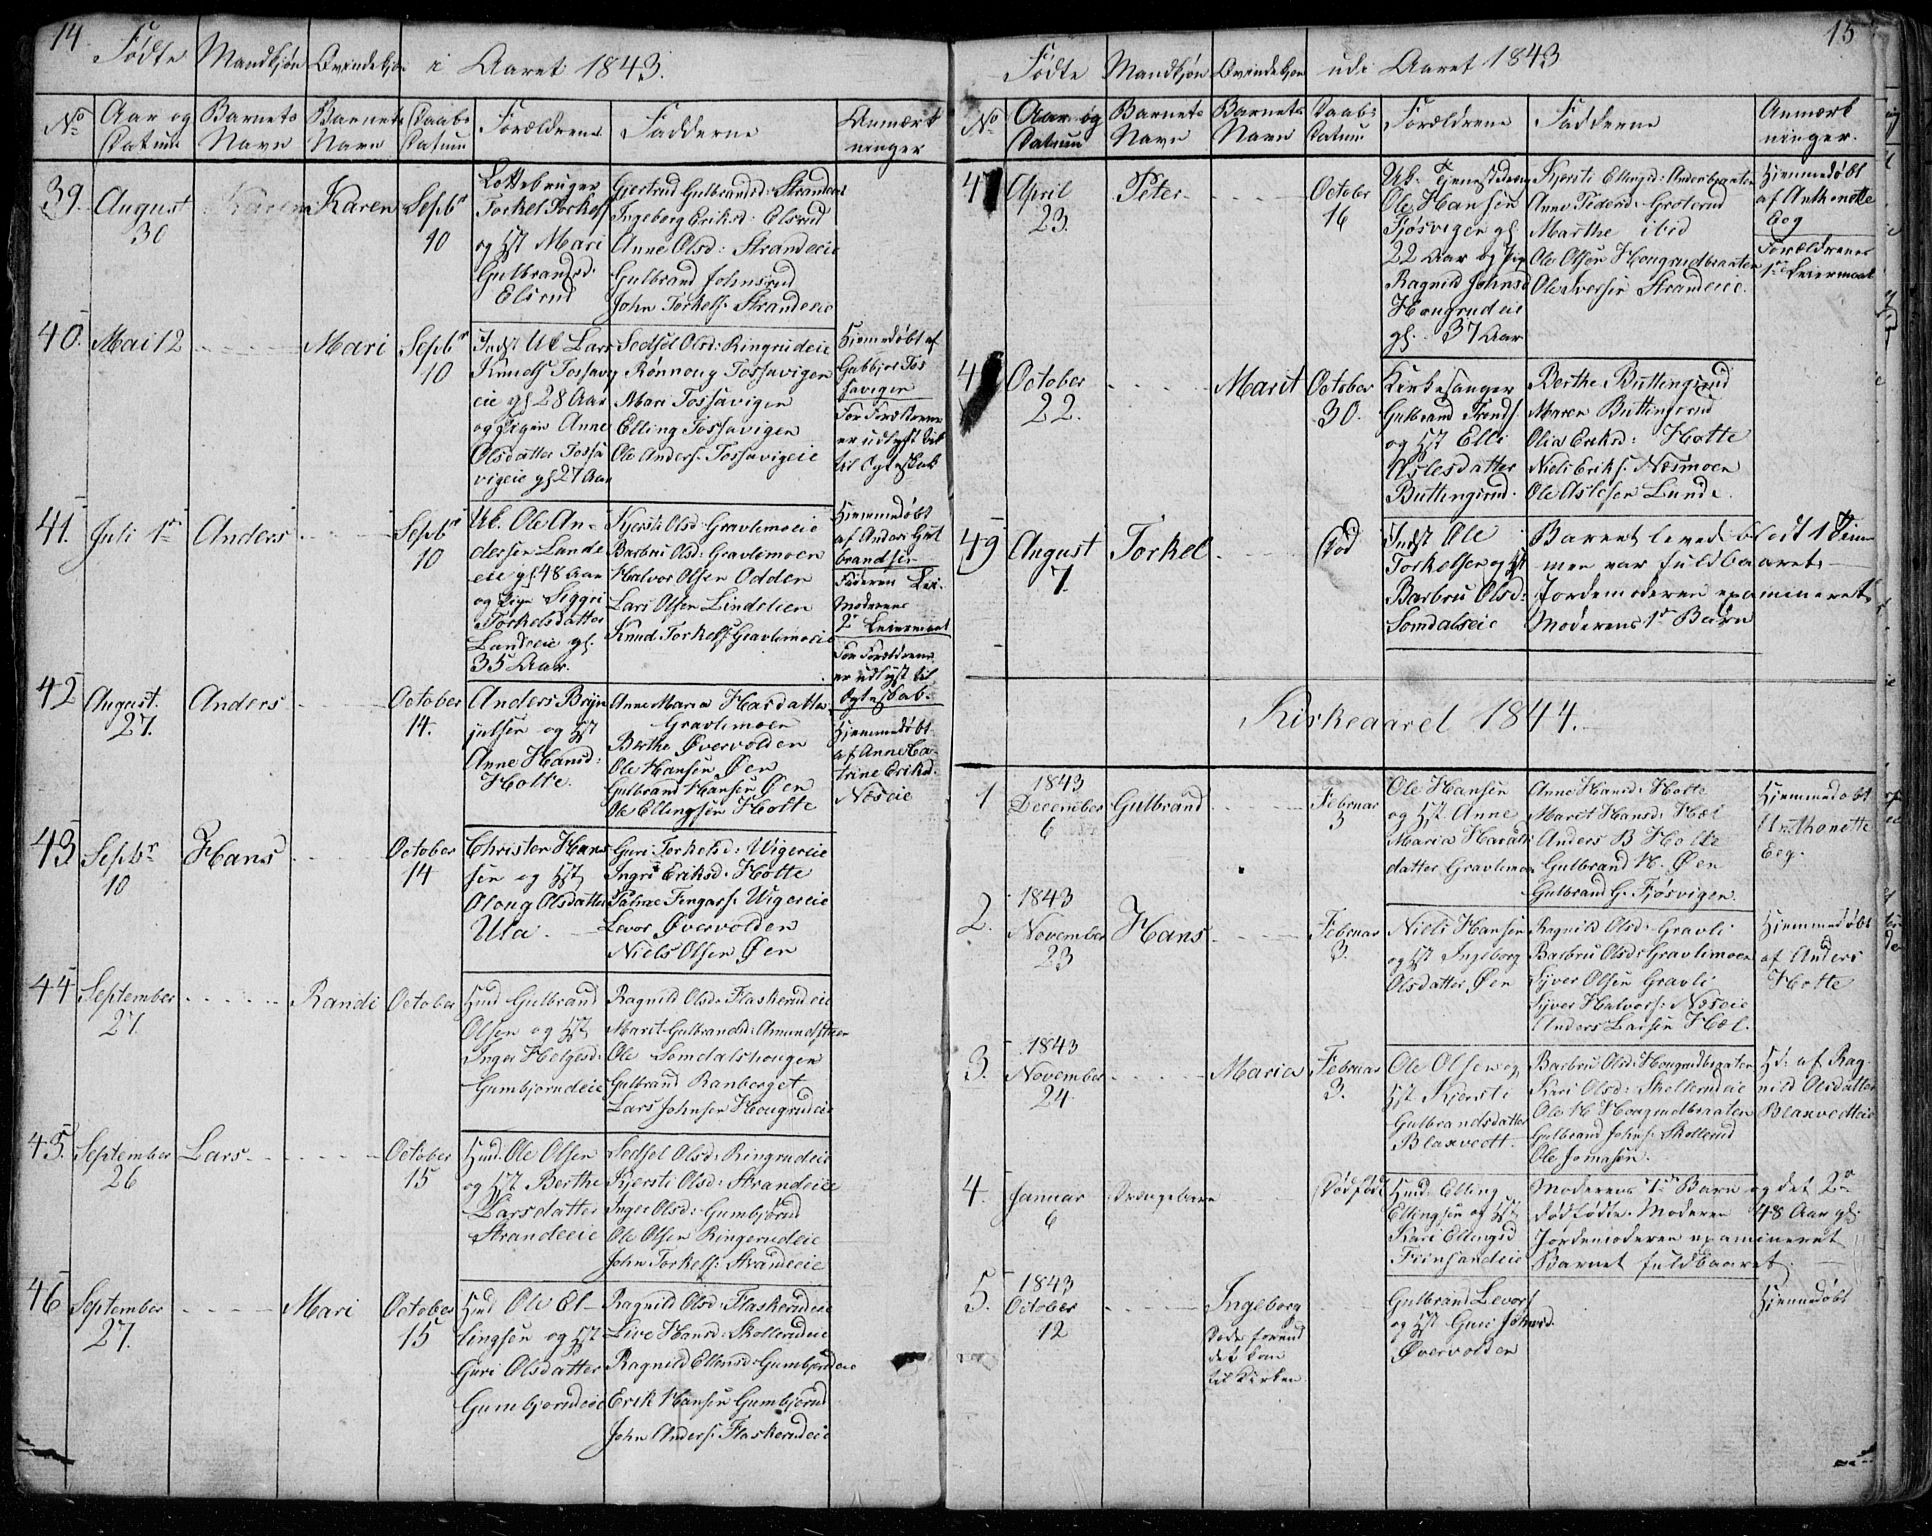 14.
Fødte Mandkjøn Qvindekjøn i Aaret 1843.
No
Aar og Datum
Barnets Navn
Barnets Navn
Daabs Datum
Forældrene
Fadderne
Anmærkninger
39.
August
30
Karen
Karen
Septbr
10
Torkel Torkels
og Hst Mari
Gulbransd:
Elsrud
Gjertrud Gulbransd: Strandeie
Ingeborg Eriksd: Elsrud
Anne Olsd: Strandeeie
Gulbrand Johnsrud
John Torkels: Strandeeie
40.
Mai 12
Mari
Septbr
10
Indst Uk Lars
Knuds Tossavig
eie gl 28 Aar
og Pigen Anne
Olsdatter Tossa
vigeie gl 27 Aar
Sedsel Olsd: Ringrudeie
Rønnoug Tossavigen
Mari Tossavigen
Elling Tossavigen
Ole Anders: Tossavigeie
Hjemmedøbt af
Gubbjør Tos
savigen
For Forældrene
er udlyst
til Ægteskab
41.
Juli 1ste
Anders
Septbr
10
Uk. Ole An-
dersen Lunde
eie gl 48 Aar
og Pige Siggri
Torkelsdatter
Lundeeie gl.
35 Aar.
Kjersti Olsd: Gravlimoeie
Barbru Olsd: Gravlimoen
Halvor Olsen Odden
Lars Olsen Lindelien
Knud Torkels: Gravlimoeie
Hjemmedøbt
af Anders Gul
brandsen
Faderens
Moderens
2det Leiermaal
For Forældrene
er udlyst til
Ægteskab.
42
August.
27.
Anders
October
14.
Anders Bryn
julsen og Hst
Anne Hansd:
Holte.
Anne Maria Harsdatter
Gravlimoen
Berthe Øvervolden
Ole Hansen Øen
Gulbrand Hansen Øen
Ole Ellingsen Holte
Hjemmedøbt
af Anne Ca-
trine Eriksd.
Næseie
43
Septbr
10
Hans
October
14
Christen Han
sen og Hst
Aloug Olsdatter
Ula.
Guri Torkelsd: Wigereie
Ingri Eriksd: Holte
Wigereie
Levor Øvervolden
Niels Olsen Øen
44
September
27.
Randi
October
Hmd Gulbrand
Olsen og Hst
Inger Helgesd:
Gumbjørudeie
Ragnild Olsd: Flaskerudeie
Marit Gulbrandsd:
Ole Somdalshougen
Gulbrand Ranberget
Lars Johnsen Hougrudeie
45.
September
26
Lars.
October
15
Hmd. Ole Olsen
og Hst Berthe
Larsdatter
Strandeeie
Sedsel Olsd: Ringrudeie
Kjersti Olsd: Strandeeie
Inger Olsd: Gumbjørud
Ole Olsen Ringerudeie
John Torkels: Strandeeie
46
September
27.
Mari
October
15
Hmd Ole El-
lingsen og Hst
Guri Olsdatter
Gumbjørudeie
Ragnild Olsd: Flaskerudeie
Live Hansd: Skollerudeie
Ragnild Ellensd: Gumbjørudeie
Erik Hansen Gumbjørud
John Anders: Flaskerudeie
15
Fødte Mandkjøn Qvindekjøn udi Aaret 1843
No
Aar og Datum
Barnets Navn
Barnets Navn
Daabs Datum
Forældrene
Fadderne
Anmærkninger.
47
April
23.
Peter
October
16
Ole Hansen
Fjøsvigen gl.
22 Aar og Pige
Ragnild Johnsd
Hougrudeie
gl. 37 Aar
Kjersti Ellingsd: Anderbraaten
Anne Pedersd: Grøterud
Marthe ibid
Ole Olsen Hougrudbraaten
Ole Iversen Strandeeie.
Hjemmedøbt
af Anthonette
Eeg
Forældrenes
1ste Leiermaal
48
October
22.
Marit
October
30.
Kirkesanger
Gulbrand Trends.
og Hst Elli
Aslesdatter
Buttengsrud.
Berthe Buttengsrud
Maren Buttengsrud
Olia Eriksd: Holte
Niels Eriks: Næsmoen
Ole Aslesen Lunde.
49
August
7.
Torkel
Død
Indst Ole
Torkelsen og Hst
Barbru Olsd:
Somdalseie
Barnet levede blodt 1 Time
men var fuldbaaret
Jordemoderen examineret
Moderens 1ste Barn
Kirkeaaret 1844.
1
1843
December
6
Gulbrand
Februar
3
Ole Hansen
og Hst Anne
Maria Harals
datter Gravlimoen
Anne Hansd: Holte
Marit Hansd: Hæl
Anders B Holte
Gulbrand H. Øen
Gulbrand G. Fjøsvigen.
Hjemmedøbt
Anthonette
Eeg.
2.
1843
November
23
Hans
Februar
3.
Niels Hansen
og Hst Ingeborg
Olsdatter Øen
Ragnild Olsd: Gravli
Barbru Olsd: Gravlimoen
Syver Olsen Gravli
Syver Halvors: Næseie
Anders Larsen Hæl.
Hjemmedøbt
af Anders
Holte
3.
1843
November
24
Maria
Februar
3.
Ole Olsen og
Hst Kjersti
Gulbrandsdatter
Blaxvedt.
Barbru Olsd: Hougrudbraaten
Kari Olsd: Skollerudeie
Ole H Hougrudbraaten
Gulbrand Johns: Skollerud
Ole Jonasen.
Hd: af Rag-
nild Olsdatter
Blaxvedteie
4.
Januar
6
Drængebarn
Dødfødt
Hmd. Elling
Ellingsen og Hst
Kari Ellingsd
Finsandeie
Moderens 1ste Barn og det 2det
dødfødte. Moderen 48 Aar gl.
Jordemoderen examineret
Barnet fuldbaaret.
5.
1843
October
12
Ingeborg
Døde forend
det kom
til Kirken
Gulbrand Levors
og Hst Guri Johnsd.
Øvervolden
Hjemmedøbt